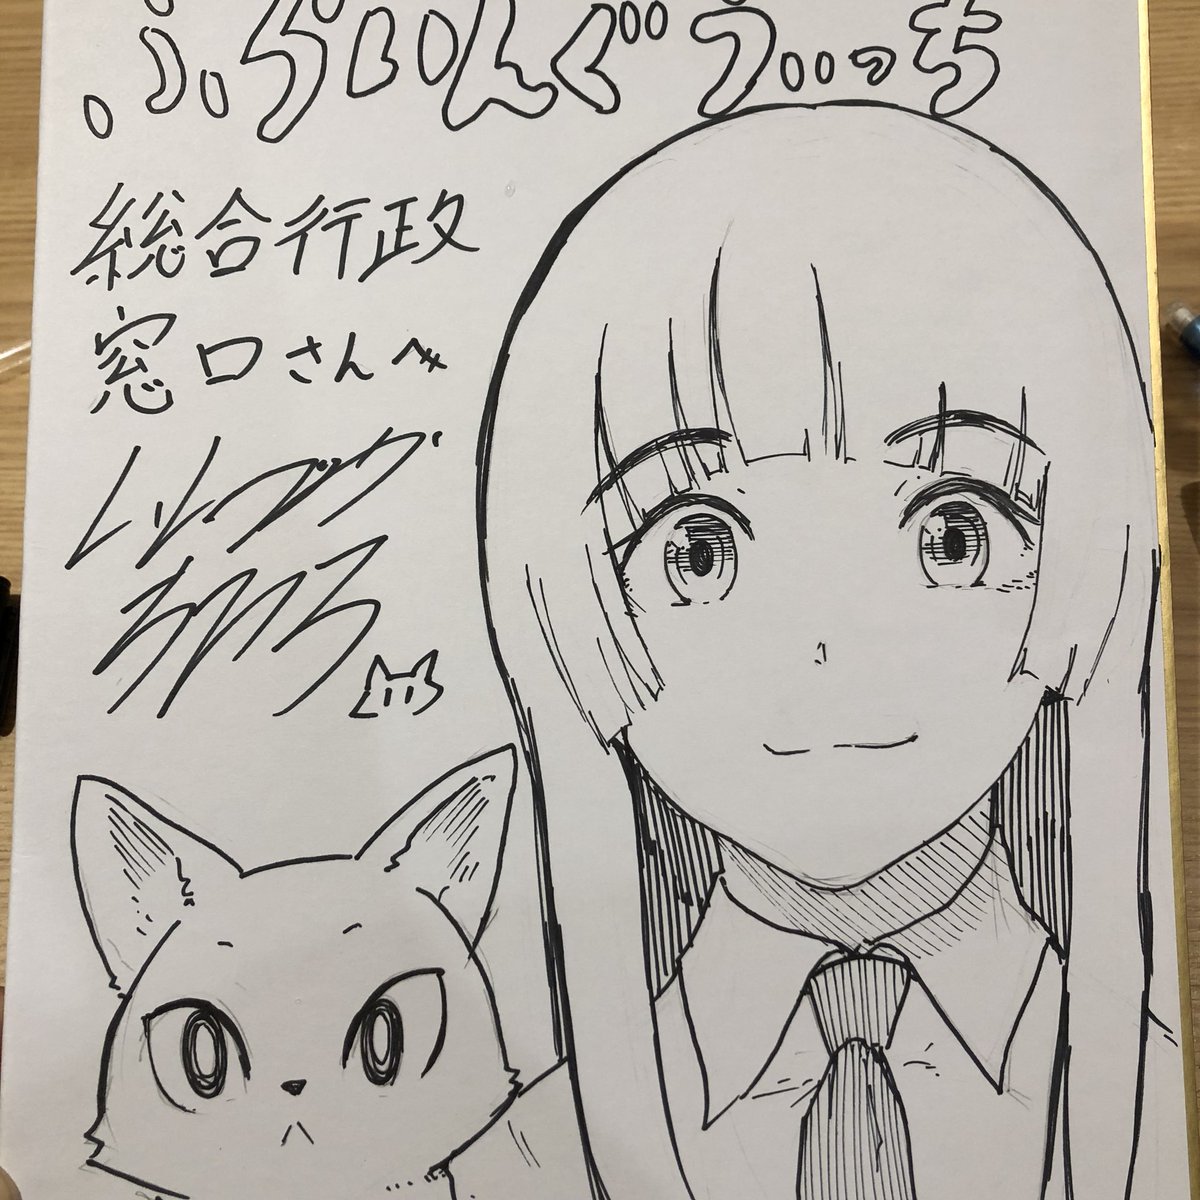 ふらいんぐうぃっち
総合行政
窓口さんへ